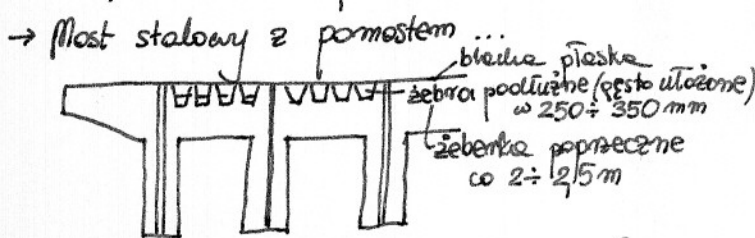 → Most stalowy z pomostem ...
blacha płaska
żebra podłużne (gęsto ułożone)
co 250 ÷ 350 mm
żeberka poprzeczne
co 2 ÷ 2,5 m